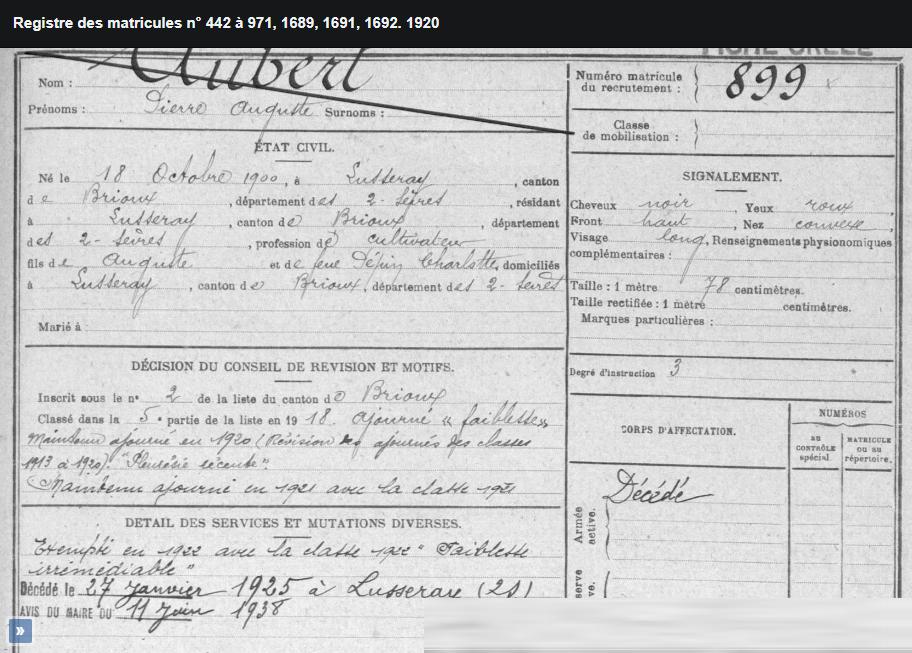 Registre des matricules n° 442 à 971, 1689, 1691, 1692. 1920
FICHE CRÉÉE
Nom : Aubert
Prénoms : Pierre Auguste Surnoms :
Numéro matricule du recrutement : 899
Classe de mobilisation :
ÉTAT CIVIL.
Né le 18 Octobre 1900, à Lusseray, canton
de Brioux, département des 2-Sèvres, résidant
à Lusseray, canton de Brioux, département
des 2-Sèvres, profession de cultivateur
fils de Auguste et de feue Charlotte, domiciliés
à Lusseray, canton de Brioux, département des 2-Sèvres
Marié à
SIGNALEMENT.
Cheveux noir, Yeux roux,
Front haut, Nez convexe,
Visage long, Renseignements physionomiques
complémentaires :
Taille : 1 mètre 78 centimètres.
Taille rectifiée : 1 mètre centimètres.
Marques particulières :
Degré d'instruction 3
DÉCISION DU CONSEIL DE REVISION ET MOTIFS.
Inscrit sous le n° 2 de la liste du canton de Brioux
Classé dans la 5e partie de la liste en 1918. ajourné « faiblesse »
Maintenu ajourné en 1920 (Révision des ajournés des classes
1913 à 1920). "Pleurésie récente".
Maintenu ajourné en 1921 avec la classe 1921
CORPS D'AFFECTATION.
NUMÉROS
au CONTRÔLE spécial.
MATRICULE ou au répertoire.
Armée active.
Décédé
DETAIL DES SERVICES ET MUTATIONS DIVERSES.
Exempté en 1922 avec la classe 1922 "Faiblesse
irrémédiable"
Décédé le 27 janvier 1925 à Lusseray (2S)
AVIS DU MAIRE DU 11 juin 1938
serve
ve.
»